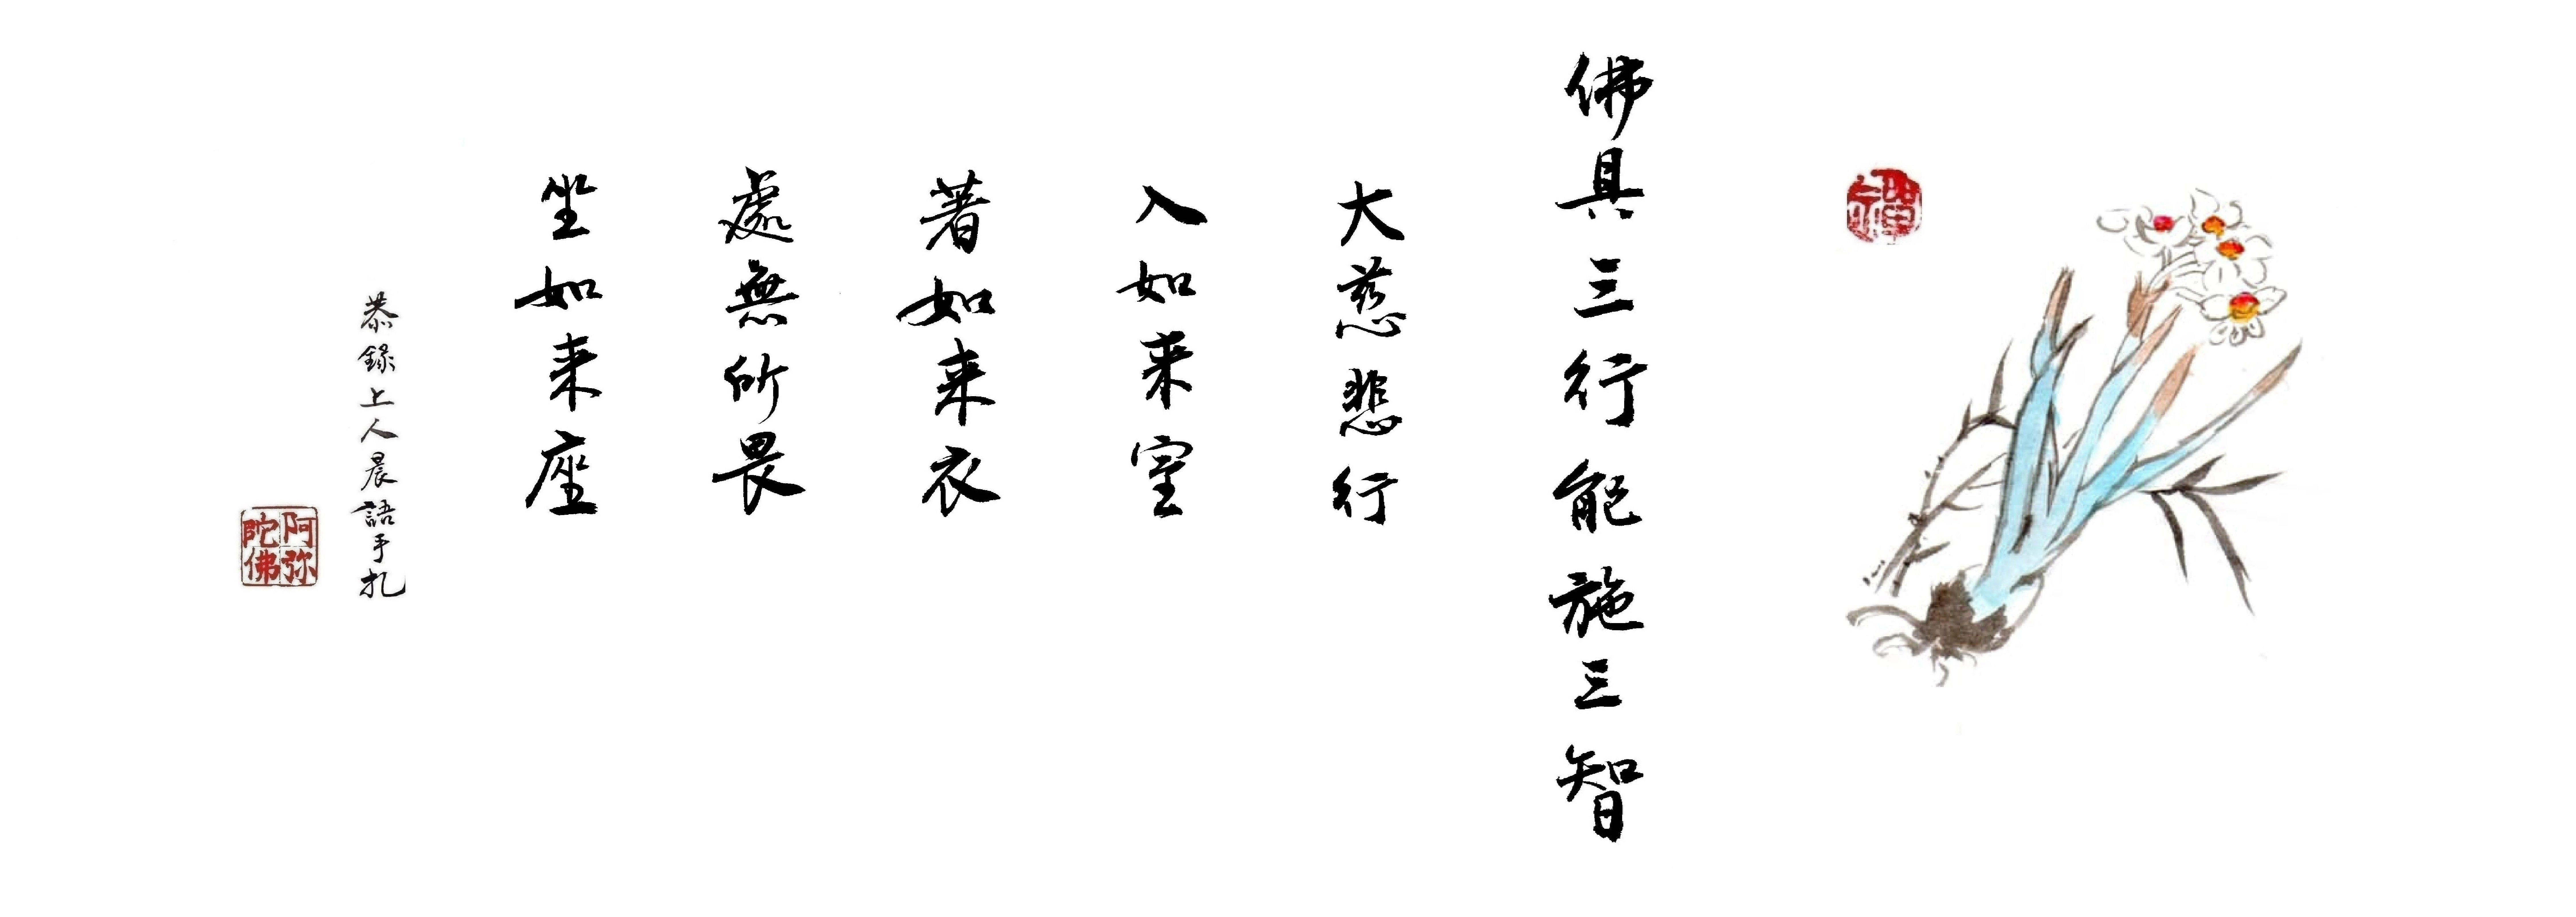 禪
佛具三行能施三智
大慈悲行
入如来室
著如来衣
處無所畏
坐如来座
恭錄上人晨語手札
阿弥
陀佛